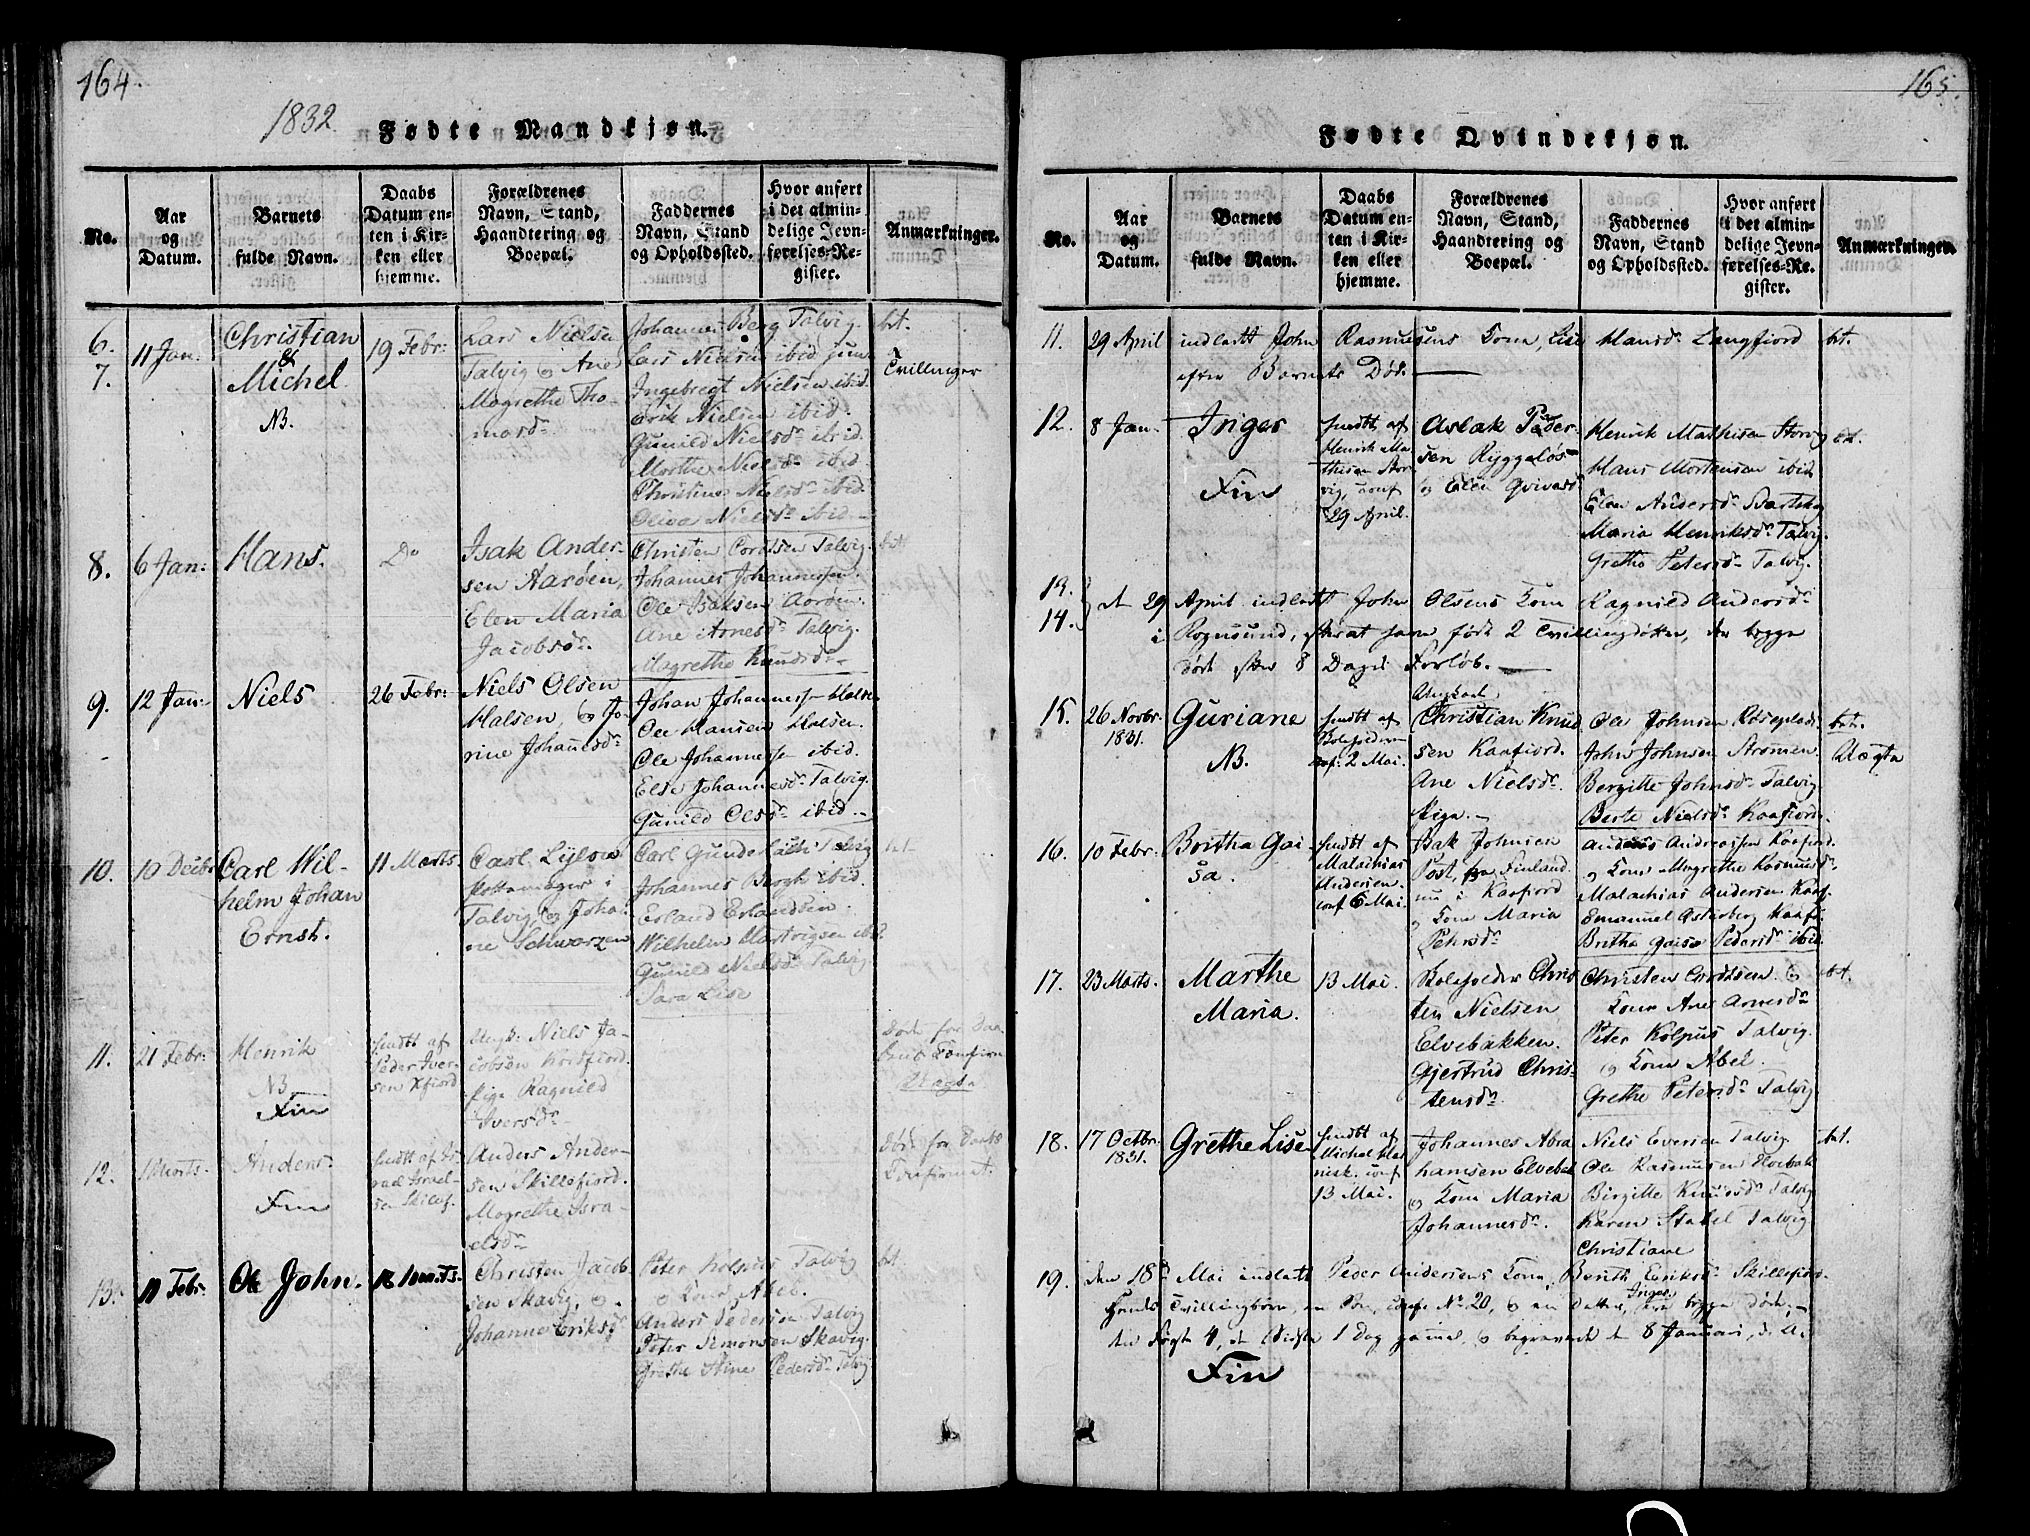 164.
1832
Fødte Mandkjøn.
No.
Aar og Datum.
Barnets fulde Navn.
Daabs Datum enten i Kirken eller hjemme.
Forældrenes Navn, Stand, Haandtering og Boepæl.
Faddernes Navn, Stand og Opholdssted.
Hvor anført i det almindelige Jevnførelses-Register.
Anmærkninger.
6.
7.
11 Jan:
Christian
&
Michel
NB.
19 Febr:
Lars Nielsen
Talvig og Ane
Magrethe Tho-
masdr
Johannes Berg Talvig.
Lars Nielsen ibid jun
Ingebregt Nielsen ibid.
Erik Nielsen ibid.
Gunild Nielsdr ibid.
Marthe Nielsdr ibid
Christine Nielsdr ibid
Oliva Nielsdr ibid
bt.
Tvillinger
8.
6 Jan:
Hans.
Do
Isak Ander-
sen Aarøen,
Elen Maria
Jacobsdr.
Christen Cordtsen Talvig.
Johannes Johannessen
Ole Isaksen Aarøen.
Ane Arnesdr Talvig.
Magrethe Knudsdr
bt
9.
12 Jan:
Niels
26 Febr:
Niels Olsen
Halsen, og Jo-
rine Johannesdr
Johan Johannes Halsen
Ole Hansen Halsen.
Ole Johannes ibid.
Else Johannesdr Talvig.
Gunild Olsdr ibid.
10.
10 Decbr
Carl Wil-
helm Johan
Ernst.
11 Marts
Carl
Pottemager i
Talvig, og Joha-
ne Schwarzen
Carl Gunderlach Talvig
Johannes Bergh ibid.
Erland Erlandsen
Wilhelm Hartvigsen ibid
Gunild Nielsdr Talvig
Sara Lise
bt
11.
21 Febr:
Henrik
NB
Fin
hiemdt af
Peder Iver-
sen Kfiord
Ungk: Niels Ja-
cobsen Korsfiord.
Pige Ragnild
Iversdr
Døde før Daa-
bens Confirm
Uægte
12.
1 Marts.
Anders
Fin
hiemdt af Is-
rael Israel-
sen Skillef.
Anders Ander-
sen Skillefiord.
Magrethe Isra-
elsdr
Døde før Daabs
Confirmat.
13.
11 Febr.
Ole John.
18 Marts.
Christen Jacob-
sen Skavig, og
Johanne Eriksdr
Peter Kolpus Talvig
og Kone Abel.
Anders Pedersen Talvig
Peter Simonsen Skavig.
Grethe Stine Pedersdr Talvig
bt.
165.
Fødte Qvindekjøn.
No.
Aar og Datum.
Barnets fulde Navn.
Daabs Datum enten i Kirken eller hjemme.
Forældrenes Navn, Stand, Haandtering og Boepæl.
Faddernes Navn, Stand og Opholdssted.
Hvor anført i det almindelige Jevnførelses-Register.
Anmærkninger.
11. 29 April indledt John Rasmusens Kone, Lise Hansdr Langfiord bt.
efter Barnets Død.
12.
8 Jan.
Inger
Fin
hiemdt af
Henrik Ma-
thisen Stor-
vig, conf
29 April.
Aslak Peder-
sen Ryggeløs
og Elen
Henrik Mathisen Storvig
Hans Mortensen ibid
Elen Andersdr
Maria Henriksdr Talvig.
Grethe Petersdr Talvig.
bt.
13.
14.
dt 29 April indledt John Olsens Kone Ragnild Andersdr
i Rognsund, som fødte 2 Tvillingdøttre, der begge
døde efter 8 Dages Forløb.
15.
26 Novbr.
1831.
Guriane
NB.
hiemdt af
conf: 2 Mai.
Ungkarl
Christian Knud-
sen Kaafiord.
Ane Nielsdr
Pige.
Ole Johnsen
John Johnsen Strømen
Bergitte Johnsdr Talvig
Berte Nielsdr Kaafiord
bt.
Uægte
16.
10 Febr:
Britha Gai-
sa.
hiemdt af
Malachias
Andersen.
conf 6 Mai.
Isak Johnsen
Post, fra Finland
nu i Kaafiord
og Kone Maria
Pehrsdr
Anders Andreassen Kaafiord
og Kone Magrethe Rasmusdr
Malachias Andersen Kaaf.
Emanuel Asterberg Kaaf.
Britha Gaisa Pedersdr ibid.
17.
23 Marts.
Marthe
Maria.
13 Mai.
Christ-
ten Nielsen
Elvebakken.
Gjertrud Chris-
tensdr
Christen Cordtsen og
Kone Ane Arnesdr
Peter Kolpus Talvig.
og Kone Abel.
Grethe Petersdr Talvig
bt.
18.
17 Octbr.
1831.
Grethe Lise
hiemdt af
Michel
conf
13 Mai.
Johannes Abra-
hamsen Elvebak
og Kone Maria
Johannesdr.
Niels Eversen Talvig
Ole Rasmusen Elvebak
Birgitte Knudsdr Talvig
Karen Stabel Talvig
Christiane
bt.
19. den 18de Mai indledt Peder Andersens Kone, Berith Eriksdr Skillefiord.
Tvillingbørn, en Søn, No 20, og en Datter, Inger, begge døde,
1 Dag gammel, og begravet d 8 Januari, d. A.
Fin